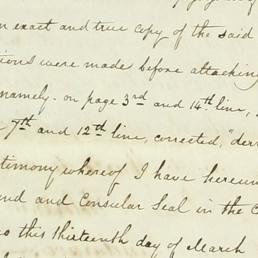 an exact and true copy of the said
tions were made before attaching
namely. on page 3rd and 14th line,
9th and 12th line, corrected, "derr
stimony whereof I have hereun
and and Consular Seal in the C
this thirteenth day of March